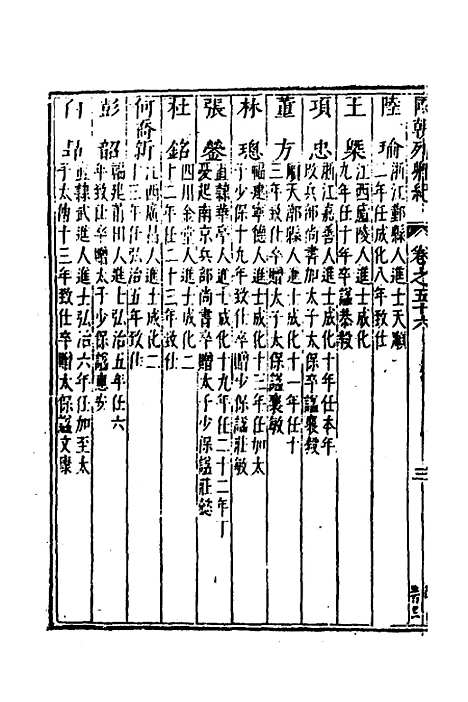 國朝列卿紀 卷之五十六 三
陸瑜 浙江鄞縣人進士天順
二年任成化八年致仕
王槩 江西廬陵人進士成化
九年任十年卒諡恭毅
項忠 浙江嘉善人進士成化十年任本年
改兵部尚書加太子太保卒諡襄毅
董方 順天府 縣人進士成化十一年任十
三年致仕卒贈太子太保諡襄敏
林聰 福建寧德人進士成化十三年任加太
子少保十九年致仕卒贈少保諡莊敏
張鎣 直隸華亭人進士成化十九年任二十二年丁
憂起南京兵部尚書卒贈太子少保諡莊懿
杜銘 四川金堂人進士成化二
十二年任二十三年致仕
何喬新 江西廣昌人進士成化二
十三年任弘治五年致仕
彭韶 福建莆田人進士弘治五年任六
年致仕卒贈太子少保諡惠安
白昂 直隸武進人進士弘治六年任加至太
子太傅十三年致仕卒贈太保諡